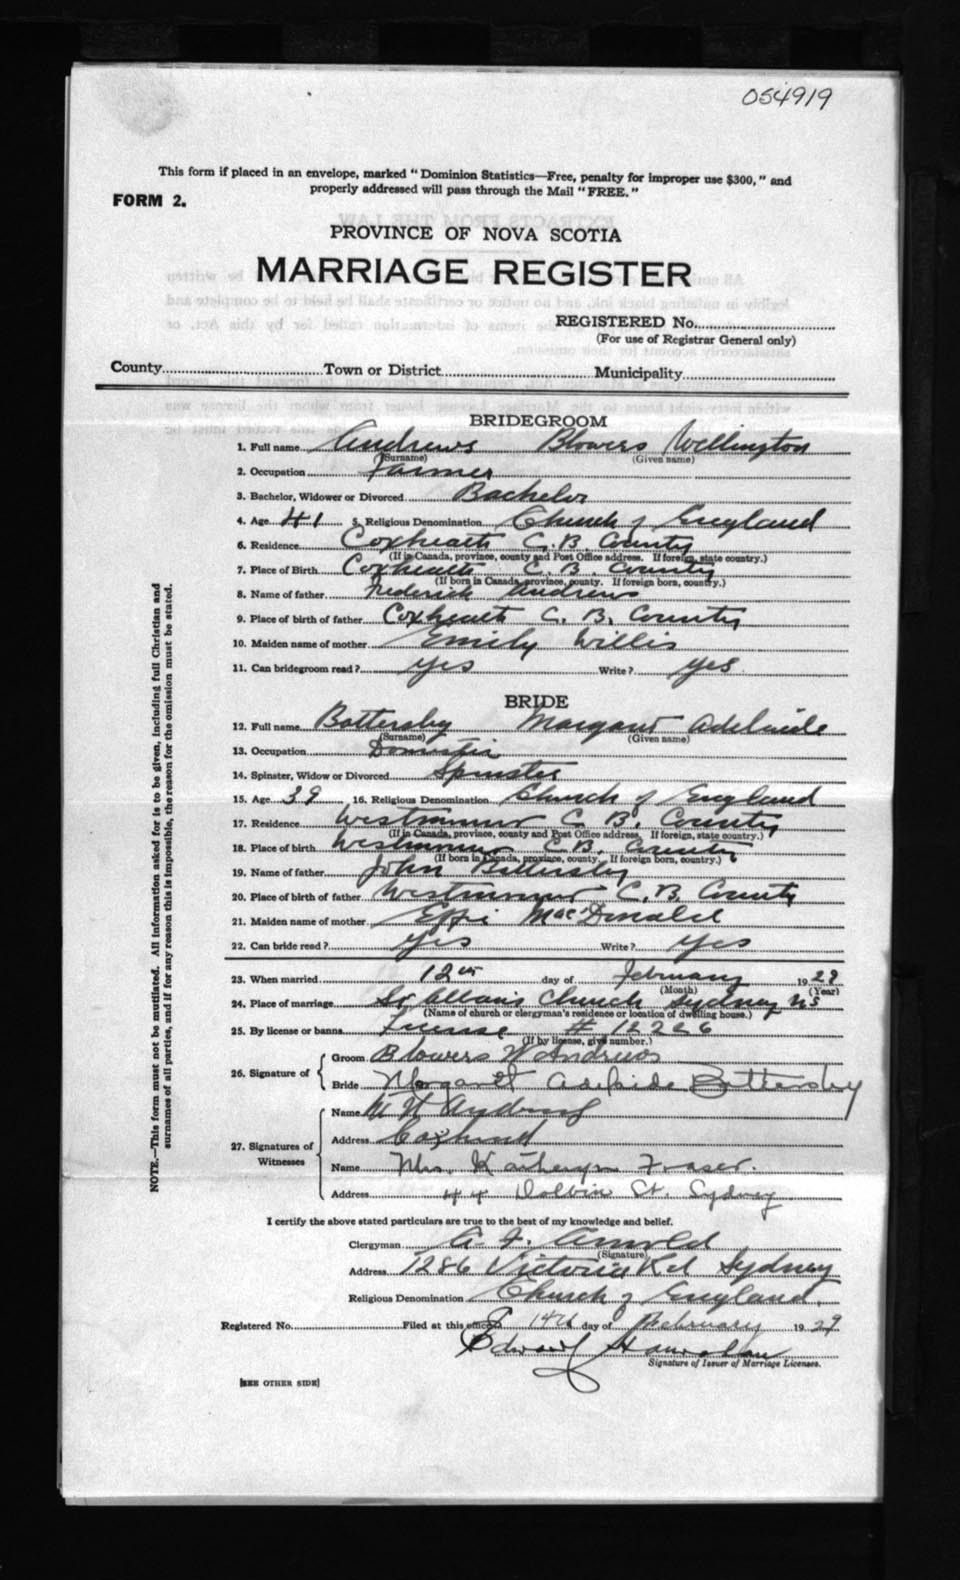 054919
This form if placed in an envelope, marked "Dominion Statistics—Free, penalty for improper use $300," and
properly addressed will pass through the Mail "FREE."
FORM 2.
PROVINCE OF NOVA SCOTIA
MARRIAGE REGISTER
REGISTERED No.
(For use of Registrar General only)
County Town or District Municipality
BRIDEGROOM
1. Full name Andrews Blowers Wellington
(Surname) (Given name)
2. Occupation Farmer
3. Bachelor, Widower or Divorced Bachelor
4. Age 41 5. Religious Denomination Church of England
6. Residence Coxheath C. B. County
(If in Canada, province, county and Post Office address. If foreign, state country.)
7. Place of Birth Coxheath C. B. County
(If born in Canada, province, county. If foreign born, country.)
8. Name of father Frederick Andrews
9. Place of birth of father Coxheath C. B. County
10. Maiden name of mother Emily Willis
11. Can bridegroom read? yes Write? yes
BRIDE
12. Full name Battersby Margaret Adelaide
(Surname) (Given name)
13. Occupation Domestic
14. Spinster, Widow or Divorced Spinster
15. Age 39 16. Religious Denomination Church of England
17. Residence Westmount C. B. County
(If in Canada, province, county and Post Office address. If foreign, state country.)
18. Place of birth Westmount C. B. County
(If born in Canada, province, county. If foreign born, country.)
19. Name of father John Battersby
20. Place of birth of father Westmount C. B. County
21. Maiden name of mother Effie MacDonald
22. Can bride read? yes Write? yes
23. When married 12th day of February 1929
(Month) (Year)
24. Place of marriage St Alban's Church Sydney NS
(Name of church or clergyman's residence or location of dwelling house.)
25. By license or banns License # 12226
(If by license, give number.)
26. Signature of
Groom Blowers W Andrews
Bride Margaret Adelaide Battersby
27. Signatures of Witnesses
Name
Address
Name Mrs. Katheryn Fraser.
Address 44 St. Sydney
I certify the above stated particulars are true to the best of my knowledge and belief.
Clergyman A. F. Arnold
(Signature)
Address 1286 Victoria Rd Sydney
Religious Denomination Church of England.
Registered No. Filed at this office 14th day of February 1929
Edward
Signature of Issuer of Marriage Licenses.
[SEE OTHER SIDE]
NOTE.—This form must not be mutilated. All information asked for is to be given, including full Christian and
surnames of all parties, and if for any reason this is impossible, the reason for the omission must be stated.